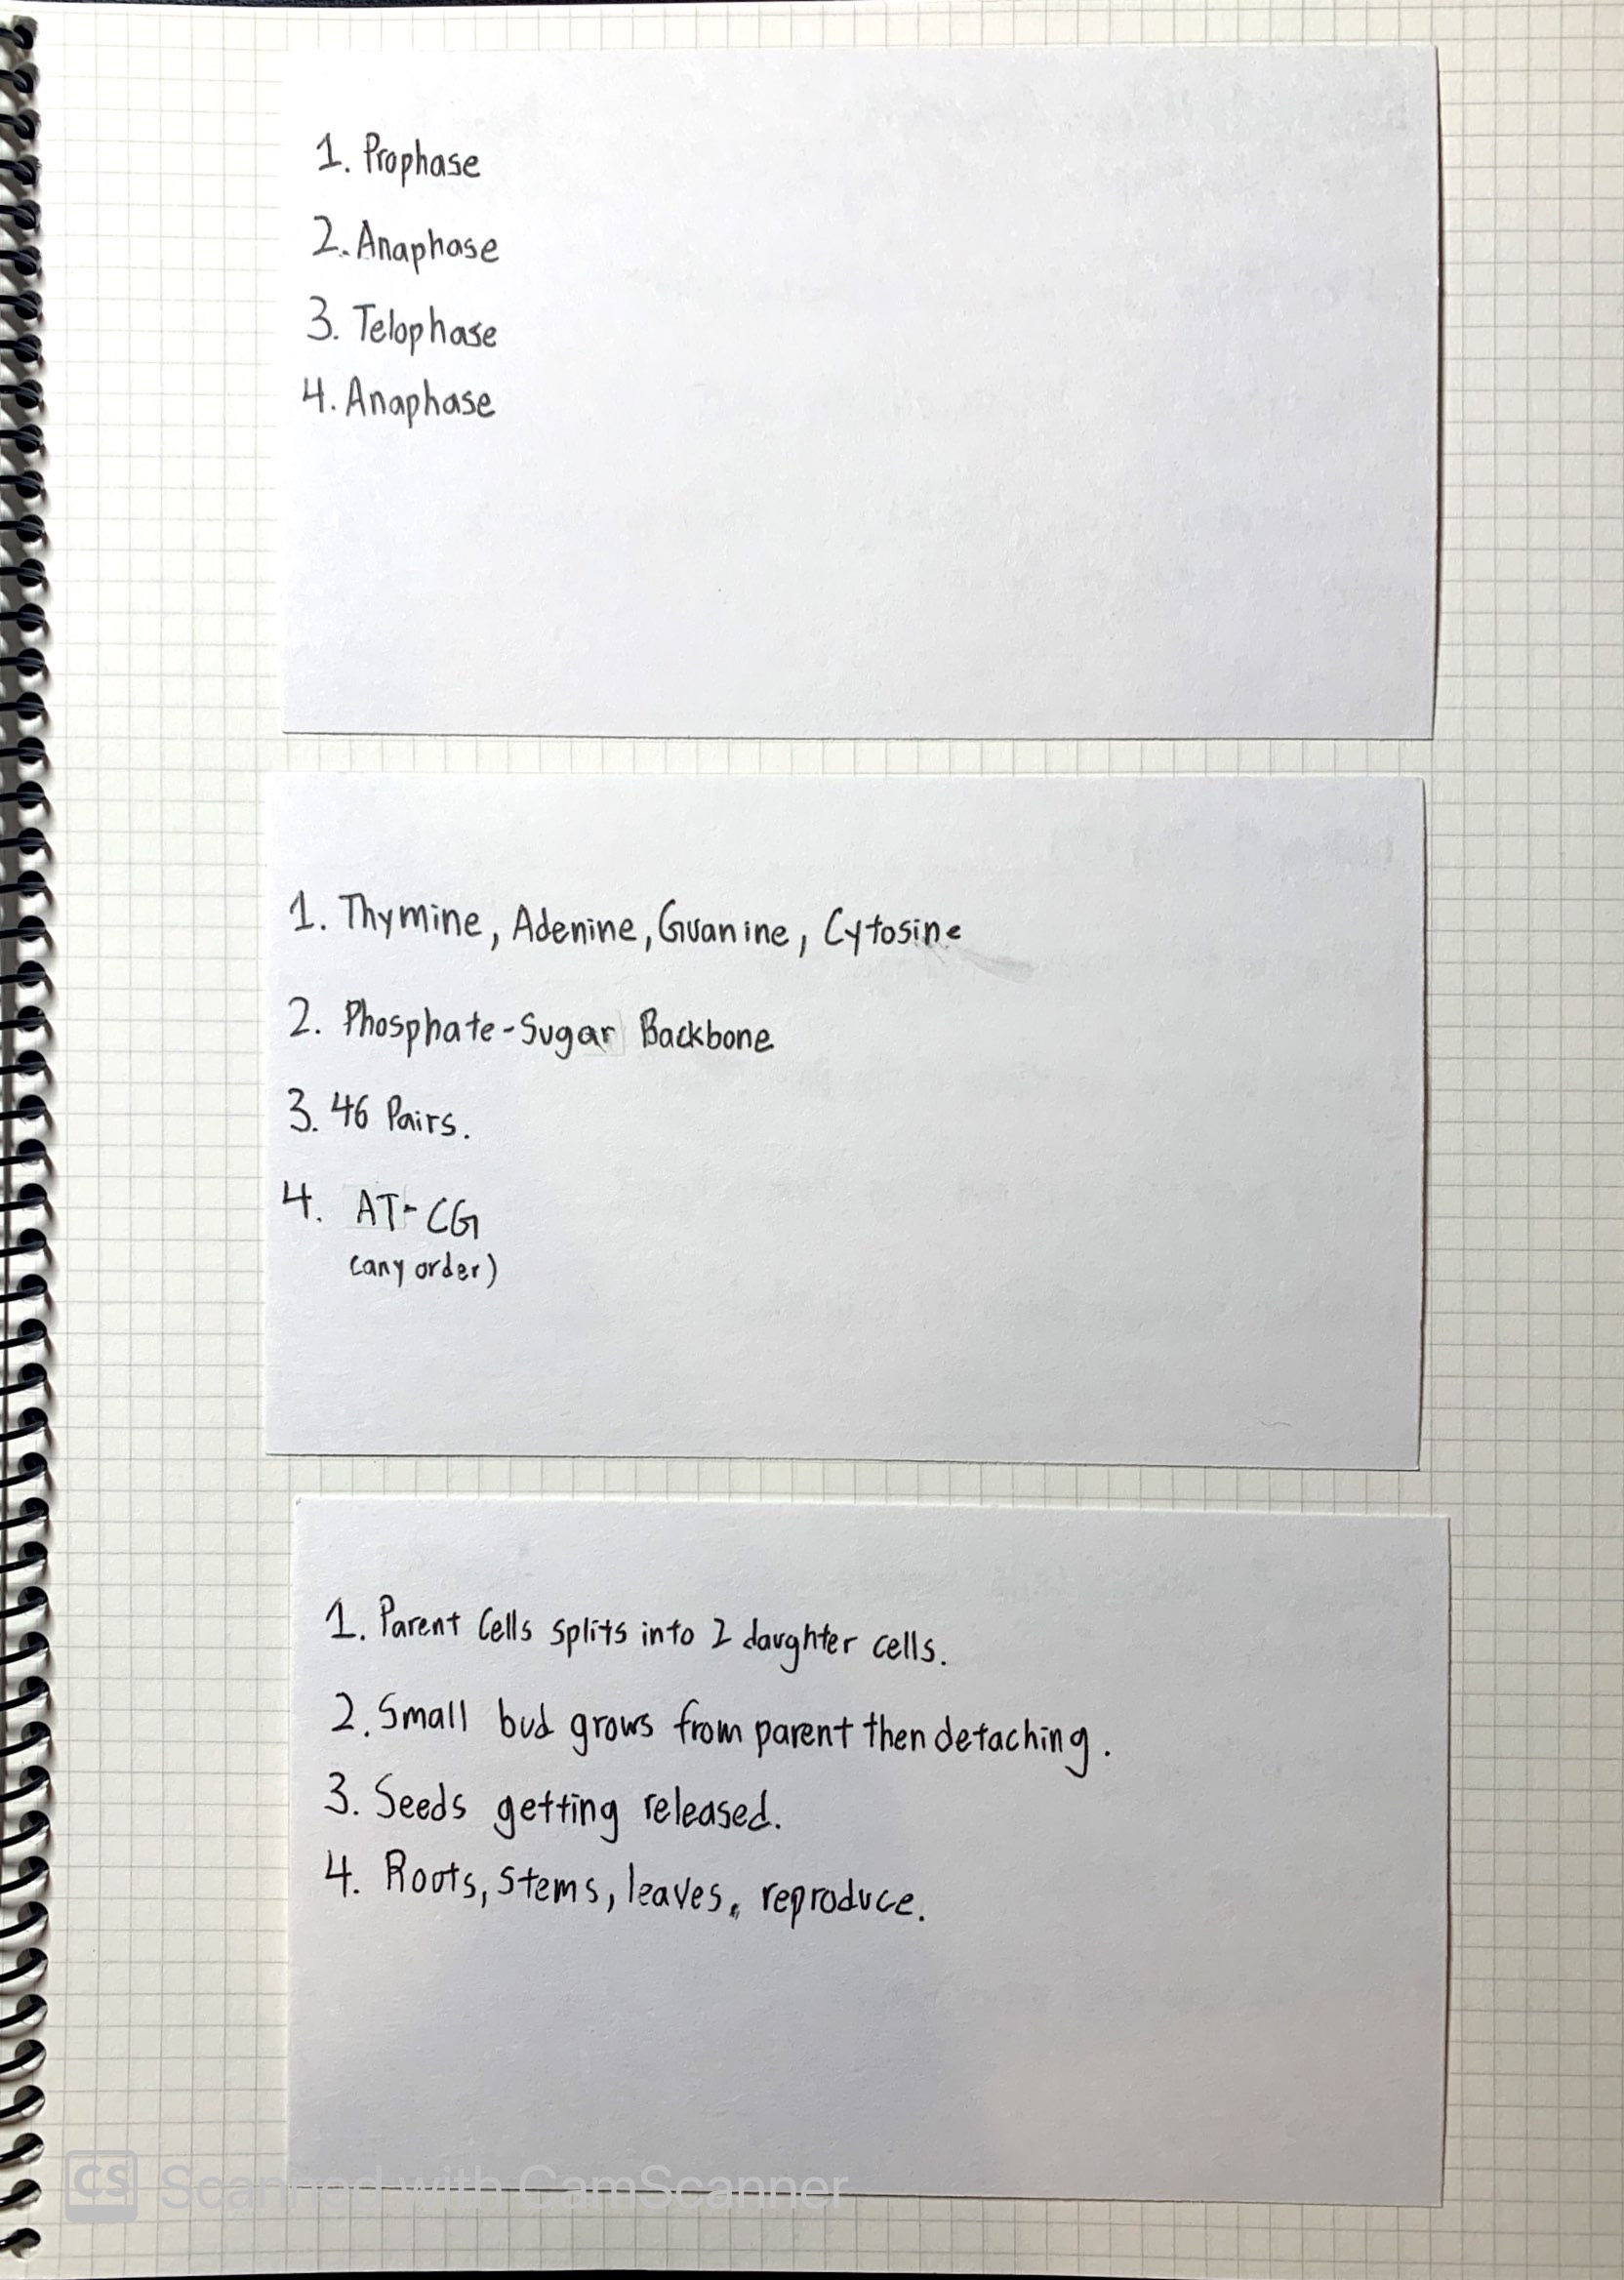 1. Prophase
2. Anaphase
3. Telophase
4. Anaphase
1. Thymine, Adenine, Guanine, Cytosine
2. Phosphate-Sugar Backbone
3. 46 Pairs.
4. AT-CG
(any order)
1. Parent Cells splits into 2 daughter cells.
2. Small bud grows from parent then detaching.
3. Seeds getting released.
4. Roots, stems, leaves, reproduce.
CS Scanned with CamScanner